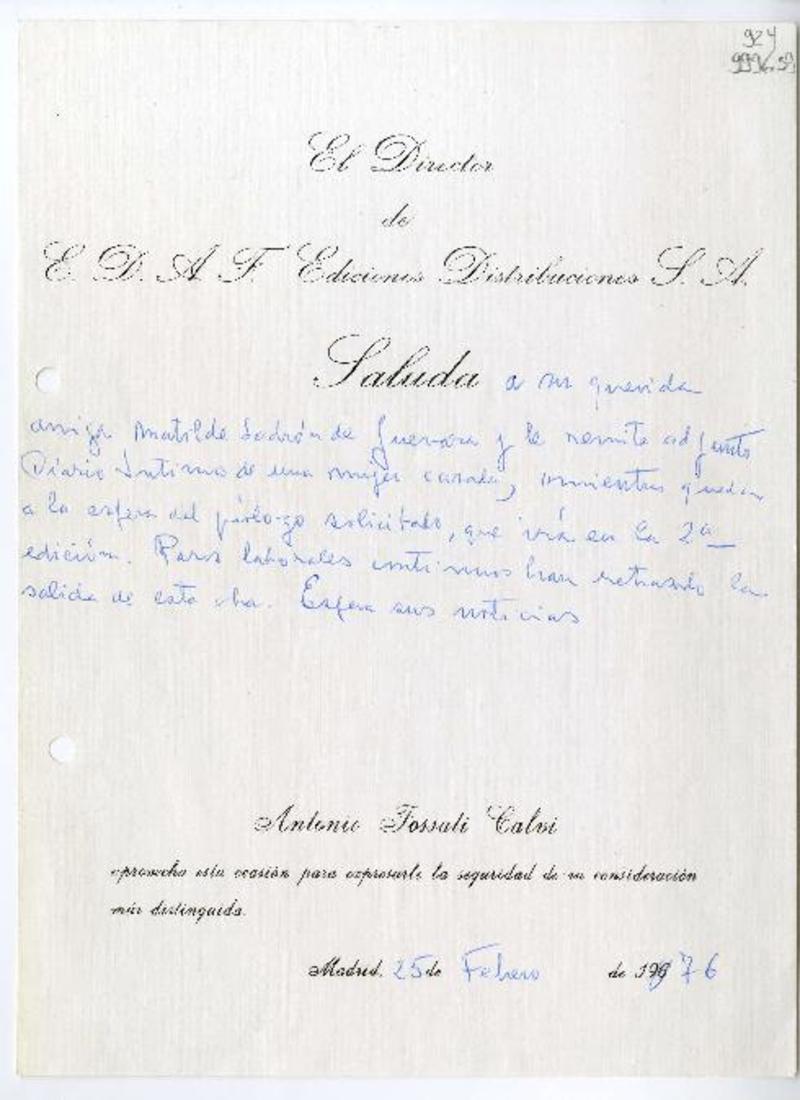 924
El Director
de
E. D. A. F. Ediciones Distribuciones S. A.
Saluda a su querida
amiga Matilde Ladrón de Guevara y le remite adjunto
Diario Íntimo de una mujer casada, mientras queda
a la espera del prólogo solicitado, que irá en la 2ª
edición. Paros laborales continuos han retrasado la
salida de esta obra. Espera sus noticias
Antonio Fossati Calvi
aprovecha esta ocasión para expresarle la seguridad de su consideración
más distinguida.
Madrid, 25 de Febrero de 1976